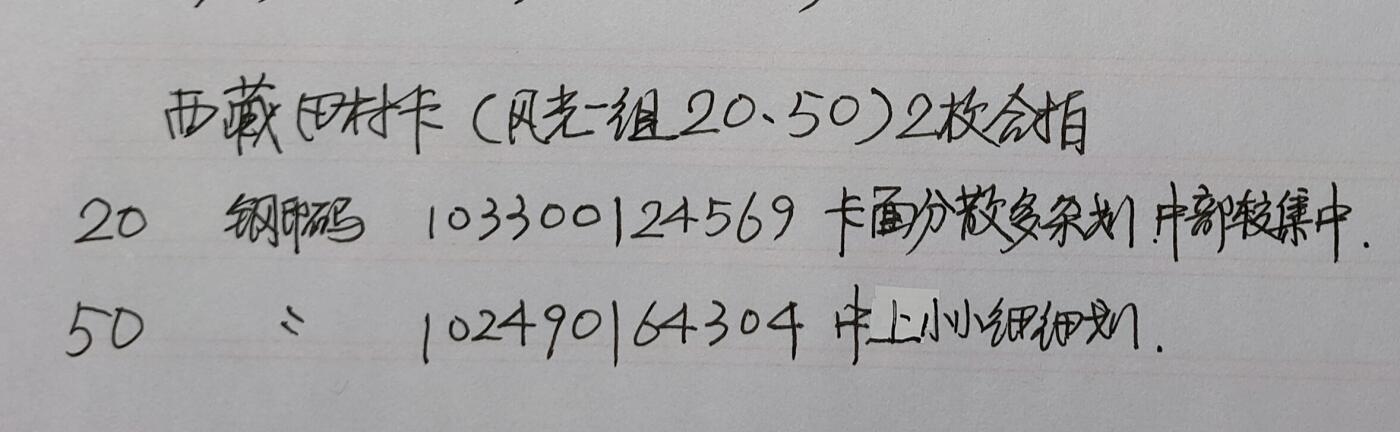 西藏田村卡(风光一组20、50)2枚合拍
20 钢印码 103300124569 卡面分散多条划.中部较集中.
50 〃 102490164304 中上小小细细划.